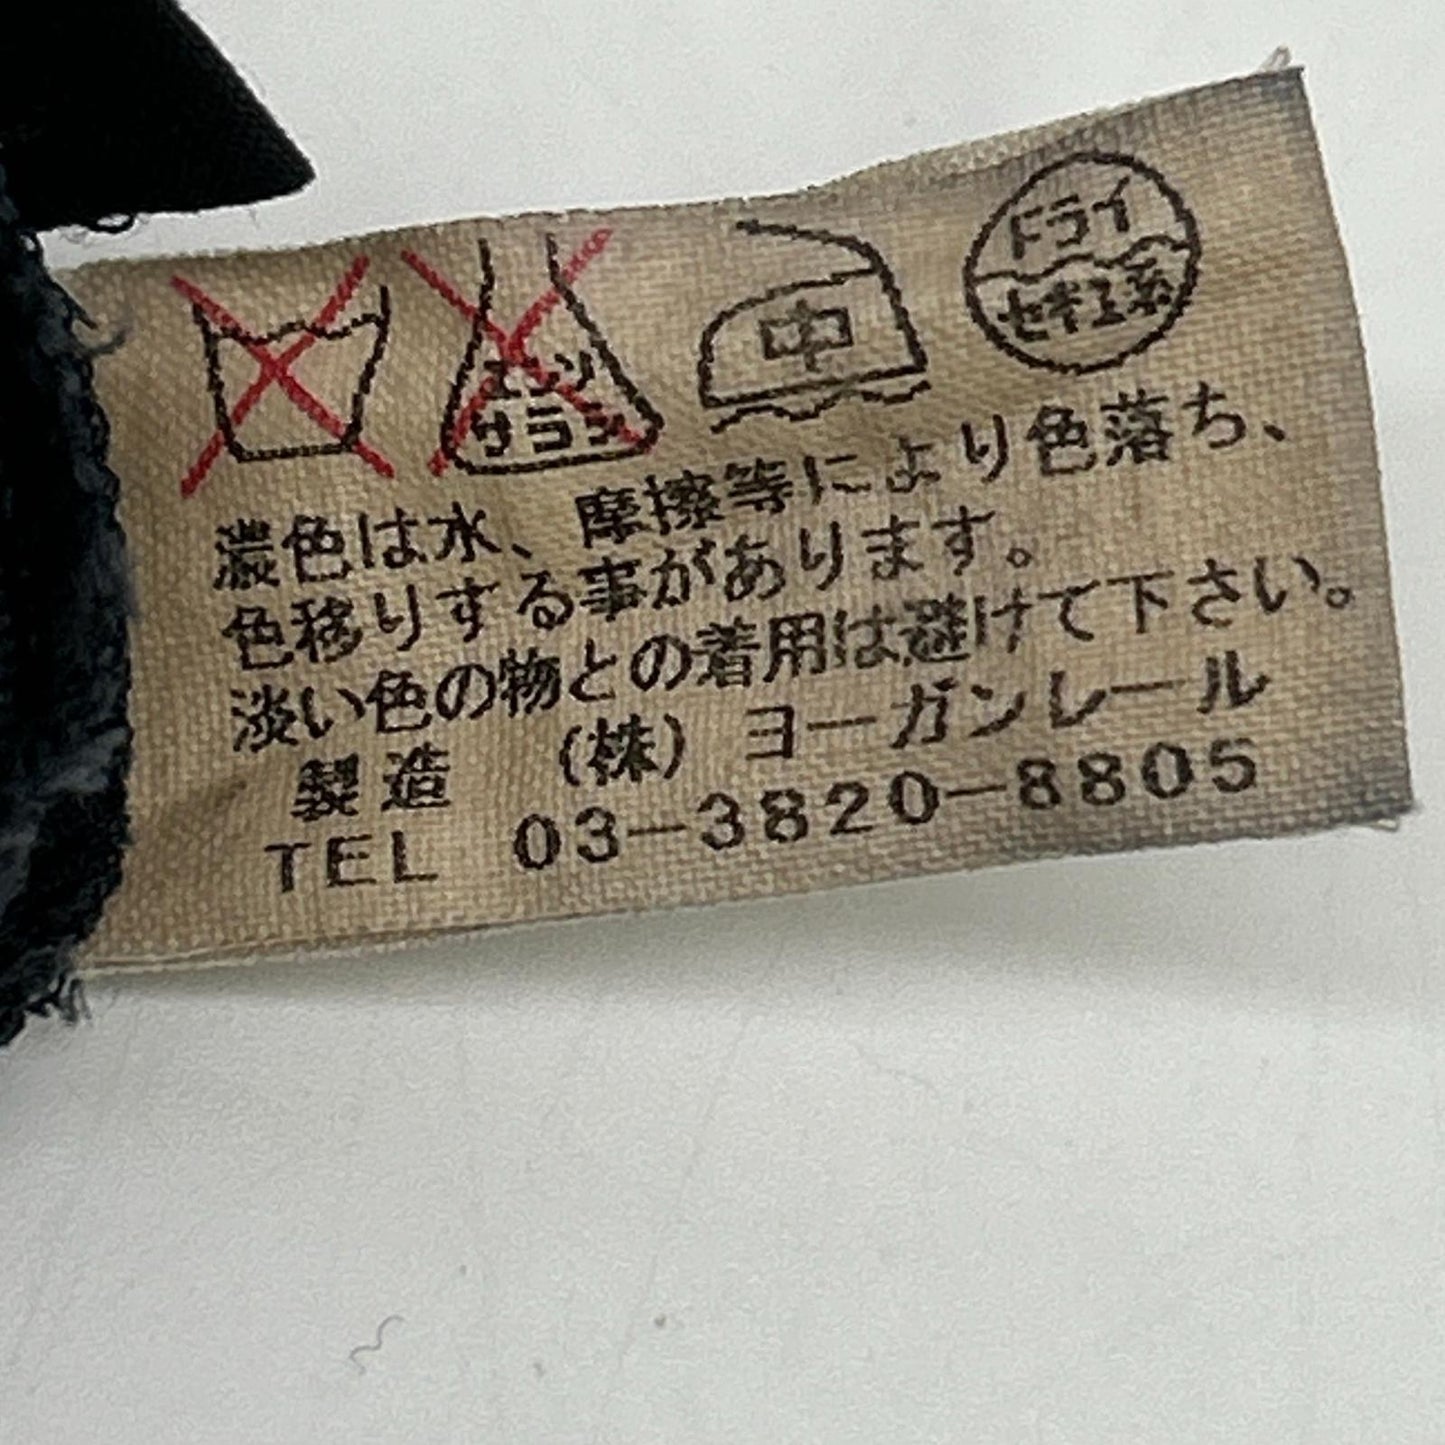 エンソ
サラシ
中
ドライ
セキユ系
濃色は水、摩擦等により色落ち、
色移りする事があります。
淡い色の物との着用は避けて下さい。
製造 (株) ヨーガンレール
TEL 03-3820-8805